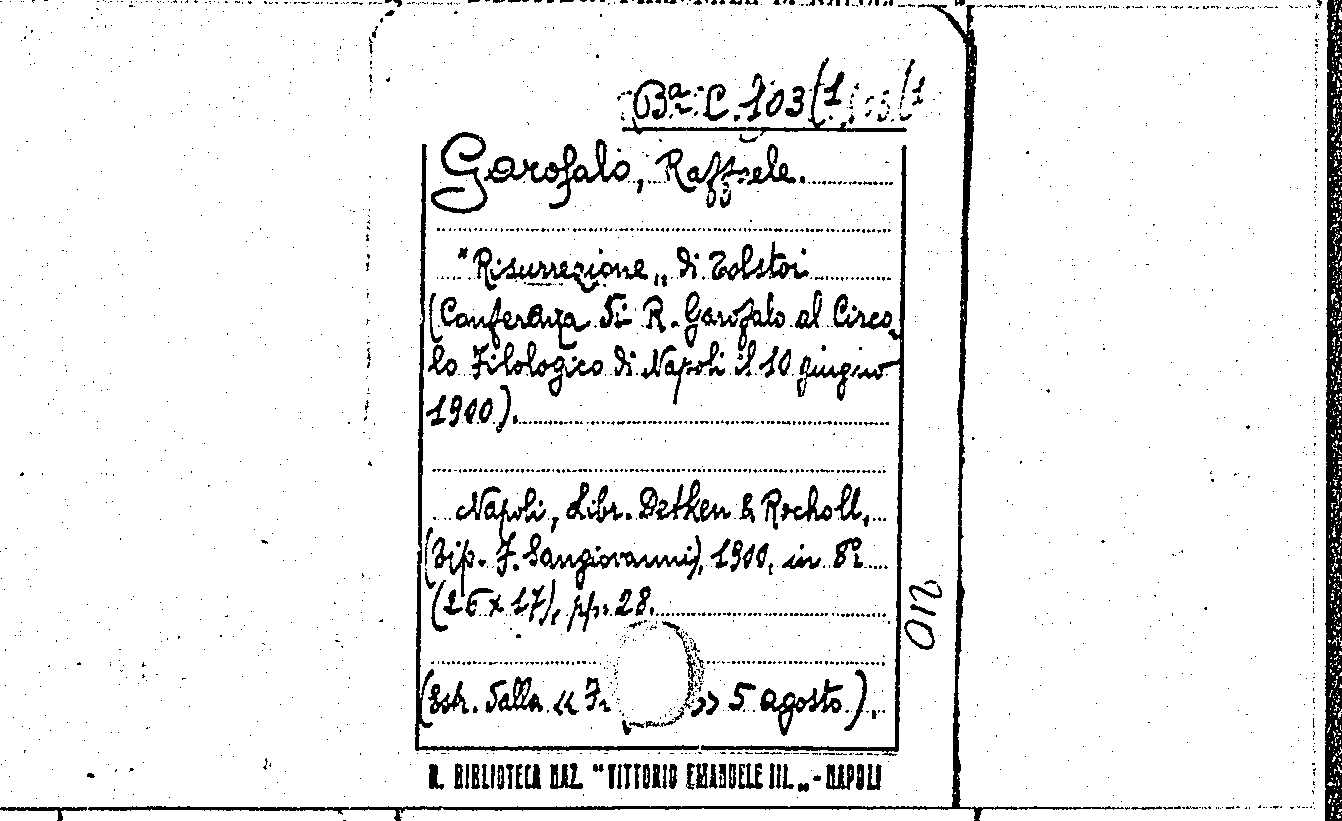 Bª C. 103(1
Garofalo, Raffaele.
"Risurrezione„ di Tolstoi
(Conferenza di R. Garofalo al Circo
lo Filologico di Napoli il 10 giugno
1900).
Napoli, Libr. Detken & Rocholl,
(Tip. F. Sangiovanni), 1900, in 8º
(26 x 17), pp. 28.
(Estr. dalla «
» 5 agosto).
210
R. BIBLIOTECA NAZ. "VITTORIO EMANUELE III.„ - NAPOLI